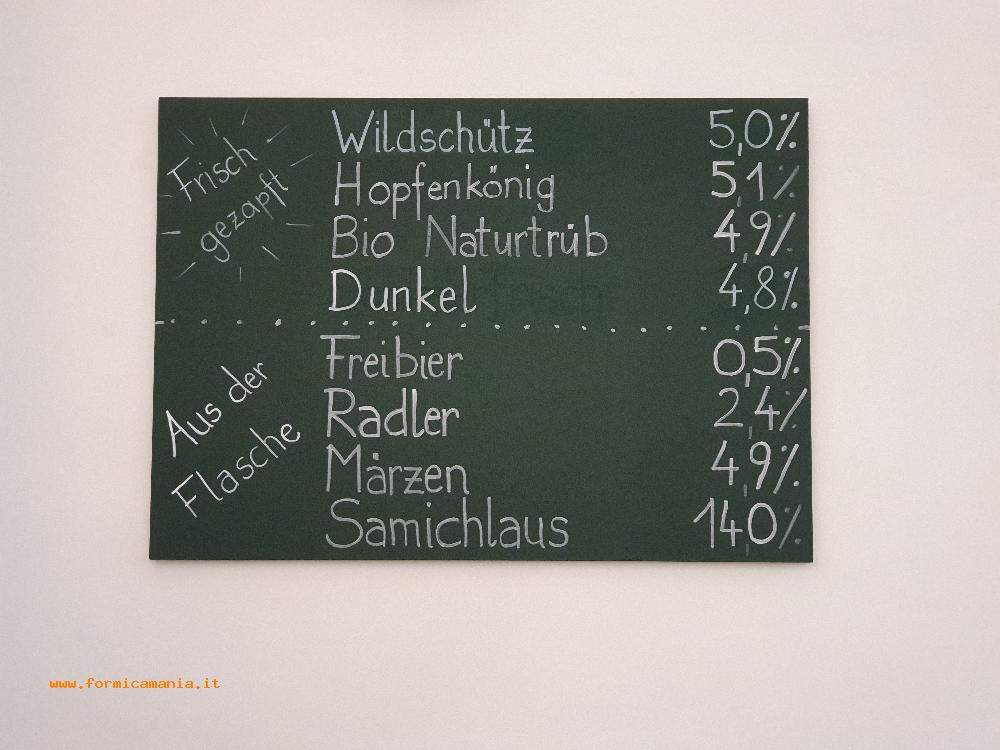 Frisch
gezapft
Wildschütz 5,0%
Hopfenkönig 5,1%
Bio Naturtrüb 4,9%
Dunkel 4,8%
Aus der
Flasche
Freibier 0,5%
Radler 2,4%
Märzen 4,9%
Samichlaus 14,0%
www.formicamania.it